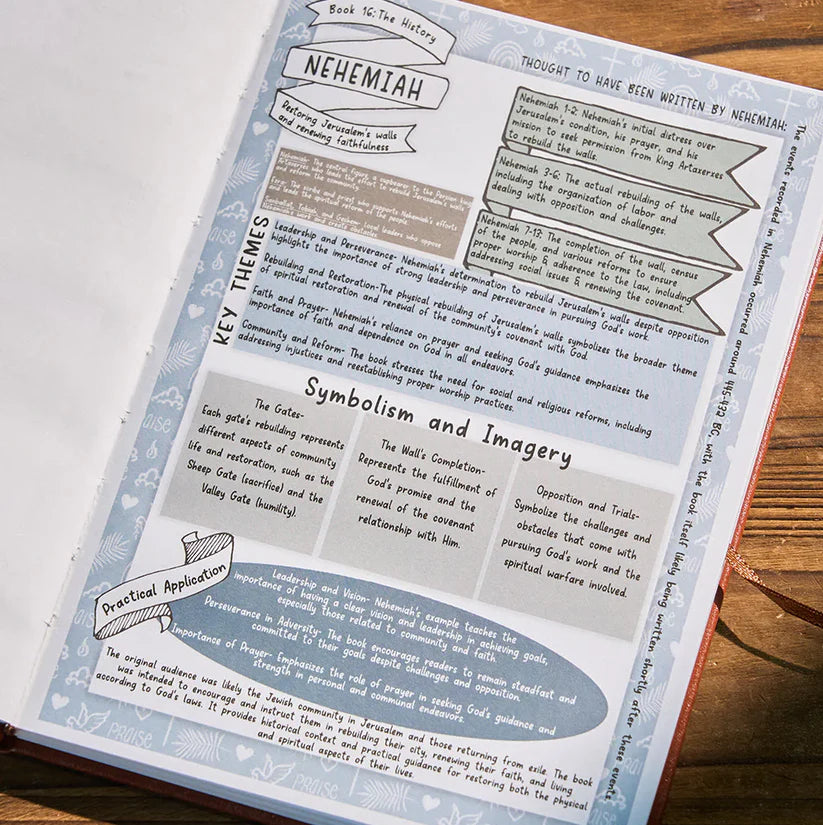 Book 16: The History
NEHEMIAH
Restoring Jerusalem's walls
and renewing faithfulness
THOUGHT TO HAVE BEEN WRITTEN BY NEHEMIAH:
The events recorded in Nehemiah occurred around 445-432 BC, with the book itself likely being written shortly after these events.
Nehemiah- The central figure, a cupbearer to the Persian king
Artaxerxes who leads the effort to rebuild Jerusalem's walls
and reform the community.
Ezra- The scribe and priest who supports Nehemiah's efforts
and leads the spiritual reform of the people.
Sanballat, Tobiah, and Geshem- local leaders who oppose
Nehemiah's work and create obstacles
Nehemiah 1-2: Nehemiah's initial distress over
Jerusalem's condition, his prayer, and his
mission to seek permission from King Artaxerxes
to rebuild the walls.
Nehemiah 3-6: The actual rebuilding of the walls,
including the organization of labor and
dealing with opposition and challenges.
Nehemiah 7-13: The completion of the wall, census
of the people, and various reforms to ensure
proper worship & adherence to the law, including
addressing social issues & renewing the covenant.
KEY THEMES
Leadership and Perseverance- Nehemiah's determination to rebuild Jerusalem's walls despite opposition
highlights the importance of strong leadership and perseverance in pursuing God's work.
Rebuilding and Restoration-The physical rebuilding of Jerusalem's walls symbolizes the broader theme
of spiritual restoration and renewal of the community's covenant with God.
Faith and Prayer- Nehemiah's reliance on prayer and seeking God's guidance emphasizes the
importance of faith and dependence on God in all endeavors.
Community and Reform- The book stresses the need for social and religious reforms, including
addressing injustices and reestablishing proper worship practices.
Symbolism and Imagery
The Gates-
Each gate's rebuilding represents
different aspects of community
life and restoration, such as the
Sheep Gate (sacrifice) and the
Valley Gate (humility).
The Wall's Completion-
Represents the fulfillment of
God's promise and the
renewal of the covenant
relationship with Him.
Opposition and Trials-
Symbolize the challenges and
obstacles that come with
pursuing God's work and the
spiritual warfare involved.
Practical Application
Leadership and Vision- Nehemiah's example teaches the
importance of having a clear vision and leadership in achieving goals,
especially those related to community and faith.
Perseverance in Adversity- The book encourages readers to remain steadfast and
committed to their goals despite challenges and opposition.
Importance of Prayer- Emphasizes the role of prayer in seeking God's guidance and
strength in personal and communal endeavors.
The original audience was likely the Jewish community in Jerusalem and those returning from exile. The book
was intended to encourage and instruct them in rebuilding their city, renewing their faith, and living
according to God's laws. It provides historical context and practical guidance for restoring both the physical
and spiritual aspects of their lives.
PRAISE
PRAISE